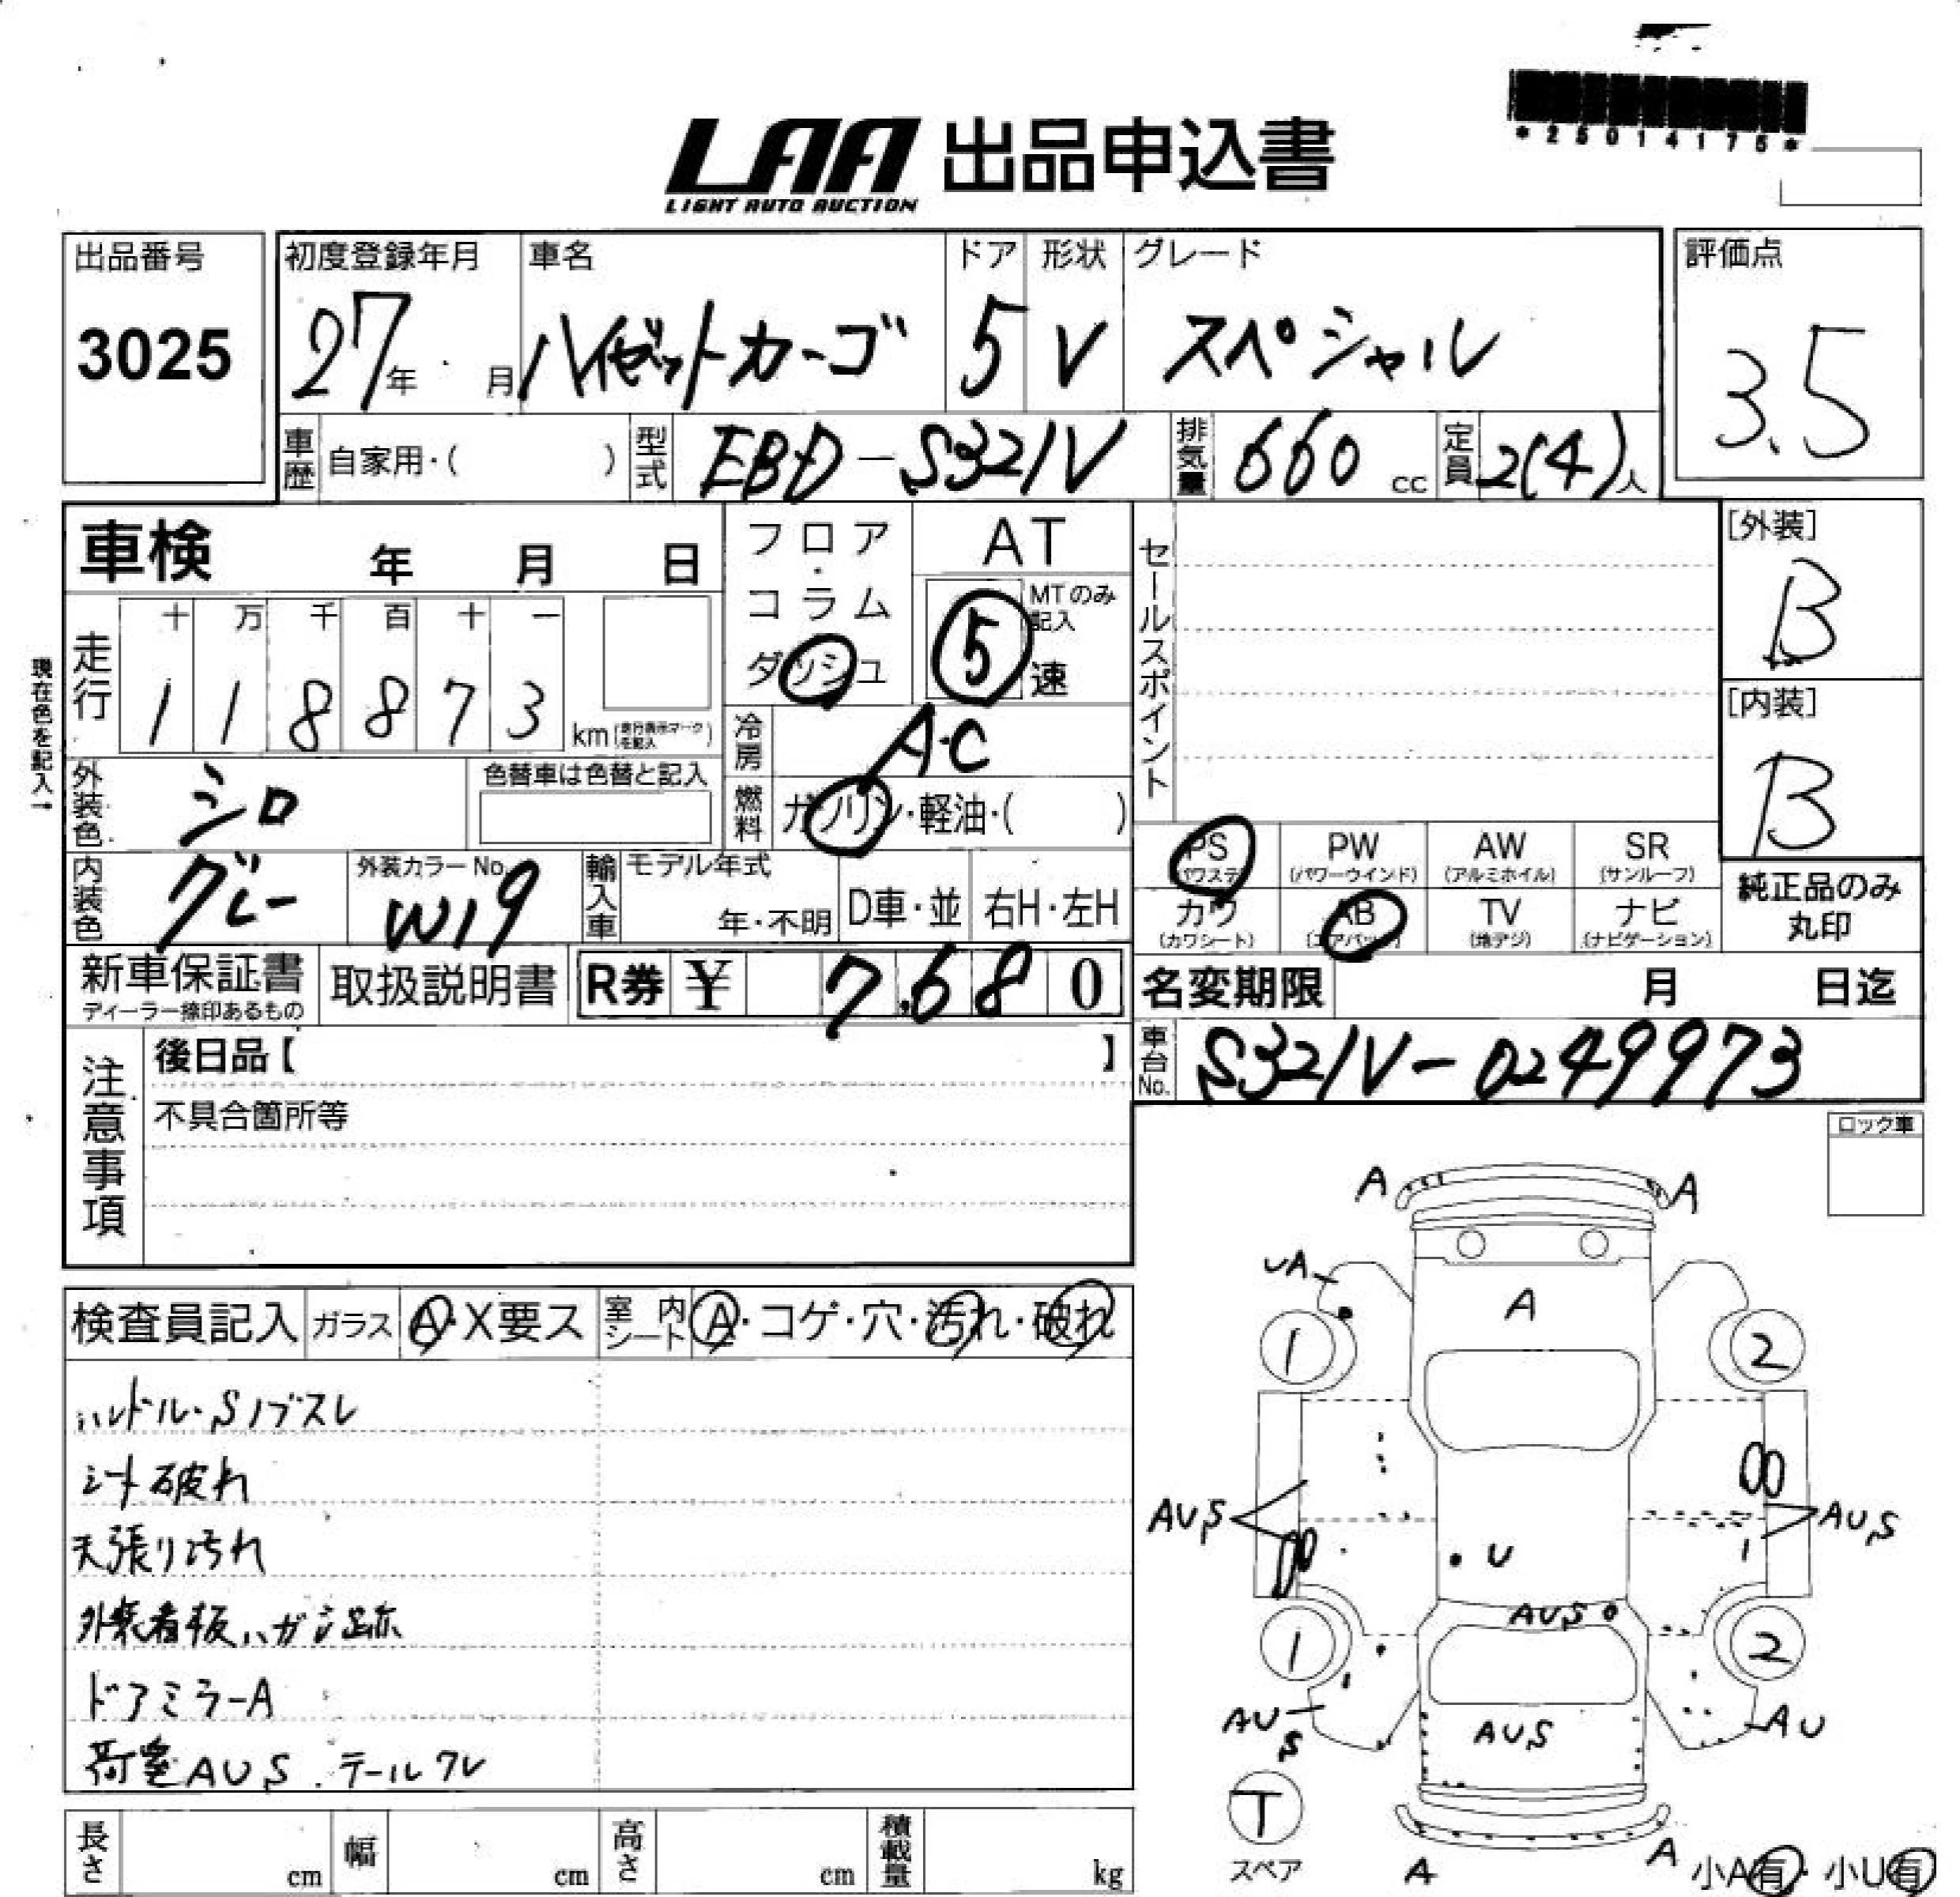 *25014175*
LAA 出品申込書
LIGHT AUTO AUCTION
出品番号 3025
初度登録年月 27年 月
車名 ハイゼットカーゴ
ドア 5
形状 V
グレード スペシャル
評価点 3.5
車歴 自家用・( )
型式 EBD-S321V
排気量 660 cc
定員 2(4)人
車検 年 月 日
フロア・コラム ダッシュ
AT
5 MTのみ記入 速
走行 十 万 千 百 十 一
1 1 8 8 7 3 km
現在色を記入→
冷房 A・C
燃料 ガソリン・軽油・( )
外装色 シロ
色替車は色替と記入
内装色 グレー
外装カラーNo. W19
輸入車 モデル年式 年・不明 D車・並 右H・左H
セールスポイント
[外装] B
[内装] B
PS (パワステ) PW (パワーウインド) AW (アルミホイル) SR (サンルーフ)
カワ (カワシート) AB (エアバック) TV (地デジ) ナビ (ナビゲーション)
純正品のみ丸印
新車保証書 ディーラー捺印あるもの
取扱説明書
R券 ¥ 7,680
名変期限 月 日迄
車台No. S321V-0249973
注意事項
後日品【 】
不具合箇所等
ロック車
検査員記入 ガラス A・X要ス 室内シート A・コゲ・穴・汚れ・破れ
ハンドル・Sノブスレ
シート破れ
天張り汚れ
外装看板ハガシ跡
ドアミラーA
荷室AUS.テールワレ
A A
UA A
1 2
AUS AUS
U
AUS
1 2
AUS AUS AU
T
スペア
A A
小A有・小U有
長さ cm 幅 cm 高さ cm 積載量 kg